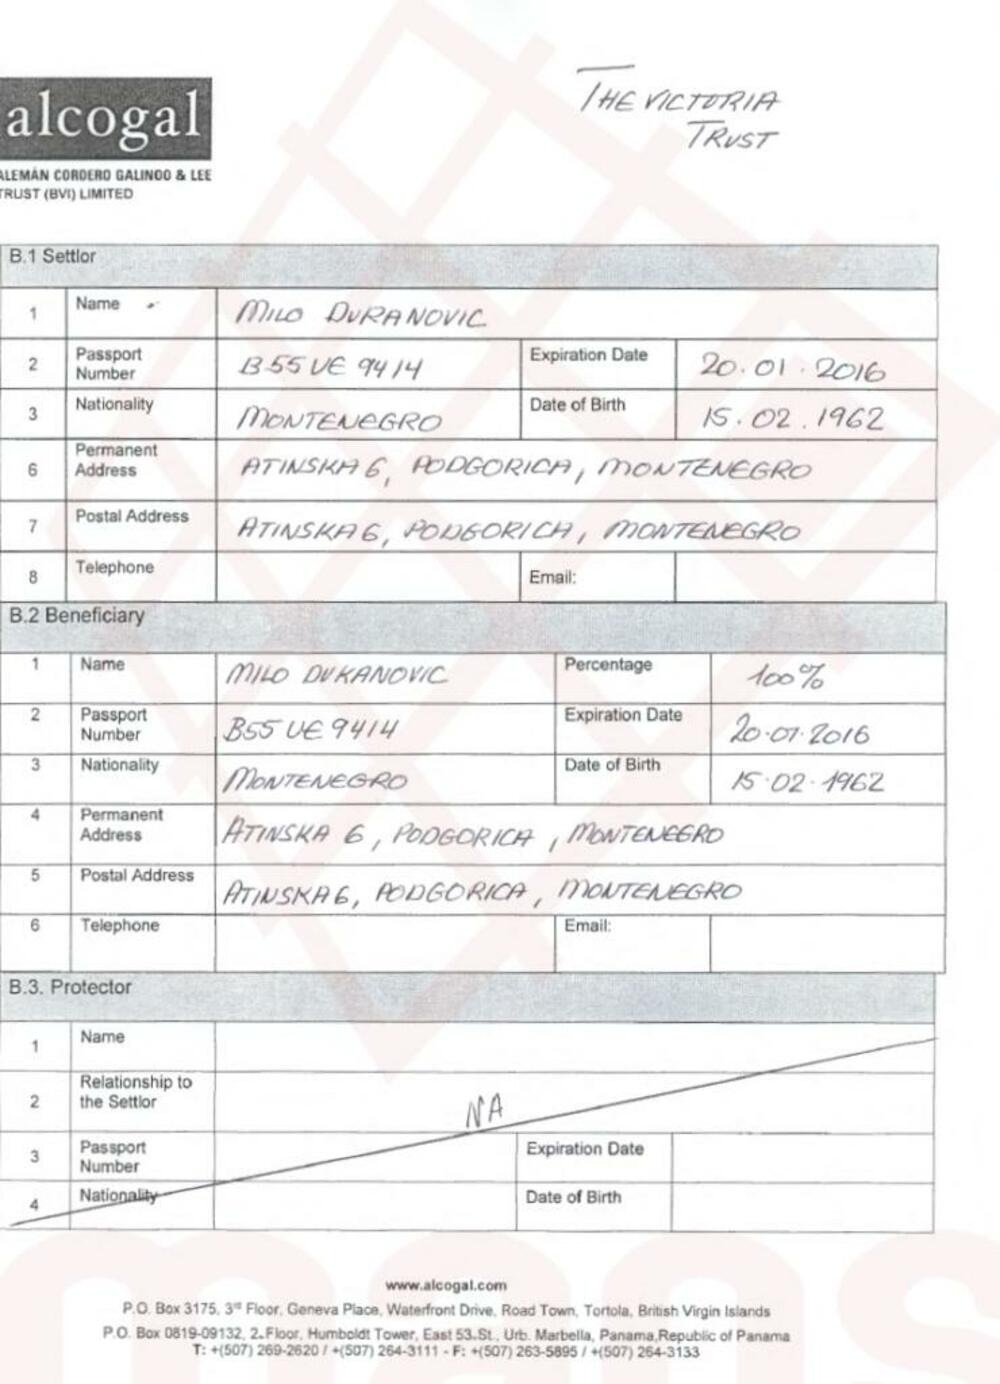 THE VICTORIA
TRUST
alcogal
ALEMÁN CORDERO GALINDO & LEE
TRUST (BVI) LIMITED
B.1 Settlor
1 Name MILO DURANOVIC
2 Passport Number B55UE9414 Expiration Date 20.01.2016
3 Nationality MONTENEGRO Date of Birth 15.02.1962
6 Permanent Address ATINSKA 6, PODGORICA, MONTENEGRO
7 Postal Address ATINSKA 6, PODGORICA, MONTENEGRO
8 Telephone Email:
B.2 Beneficiary
1 Name MILO DUKANOVIC Percentage 100%
2 Passport Number B55UE9414 Expiration Date 20.01.2016
3 Nationality MONTENEGRO Date of Birth 15.02.1962
4 Permanent Address ATINSKA 6, PODGORICA, MONTENEGRO
5 Postal Address ATINSKA 6, PODGORICA, MONTENEGRO
6 Telephone Email:
B.3. Protector
1 Name
2 Relationship to the Settlor NA
3 Passport Number Expiration Date
4 Nationality Date of Birth
www.alcogal.com
P.O. Box 3175, 3rd Floor, Geneva Place, Waterfront Drive, Road Town, Tortola, British Virgin Islands
P.O. Box 0819-09132, 2-Floor, Humboldt Tower, East 53.St., Urb. Marbella, Panama,Republic of Panama
T: +(507) 269-2620 / +(507) 264-3111 - F: +(507) 263-5895 / +(507) 264-3133
mans